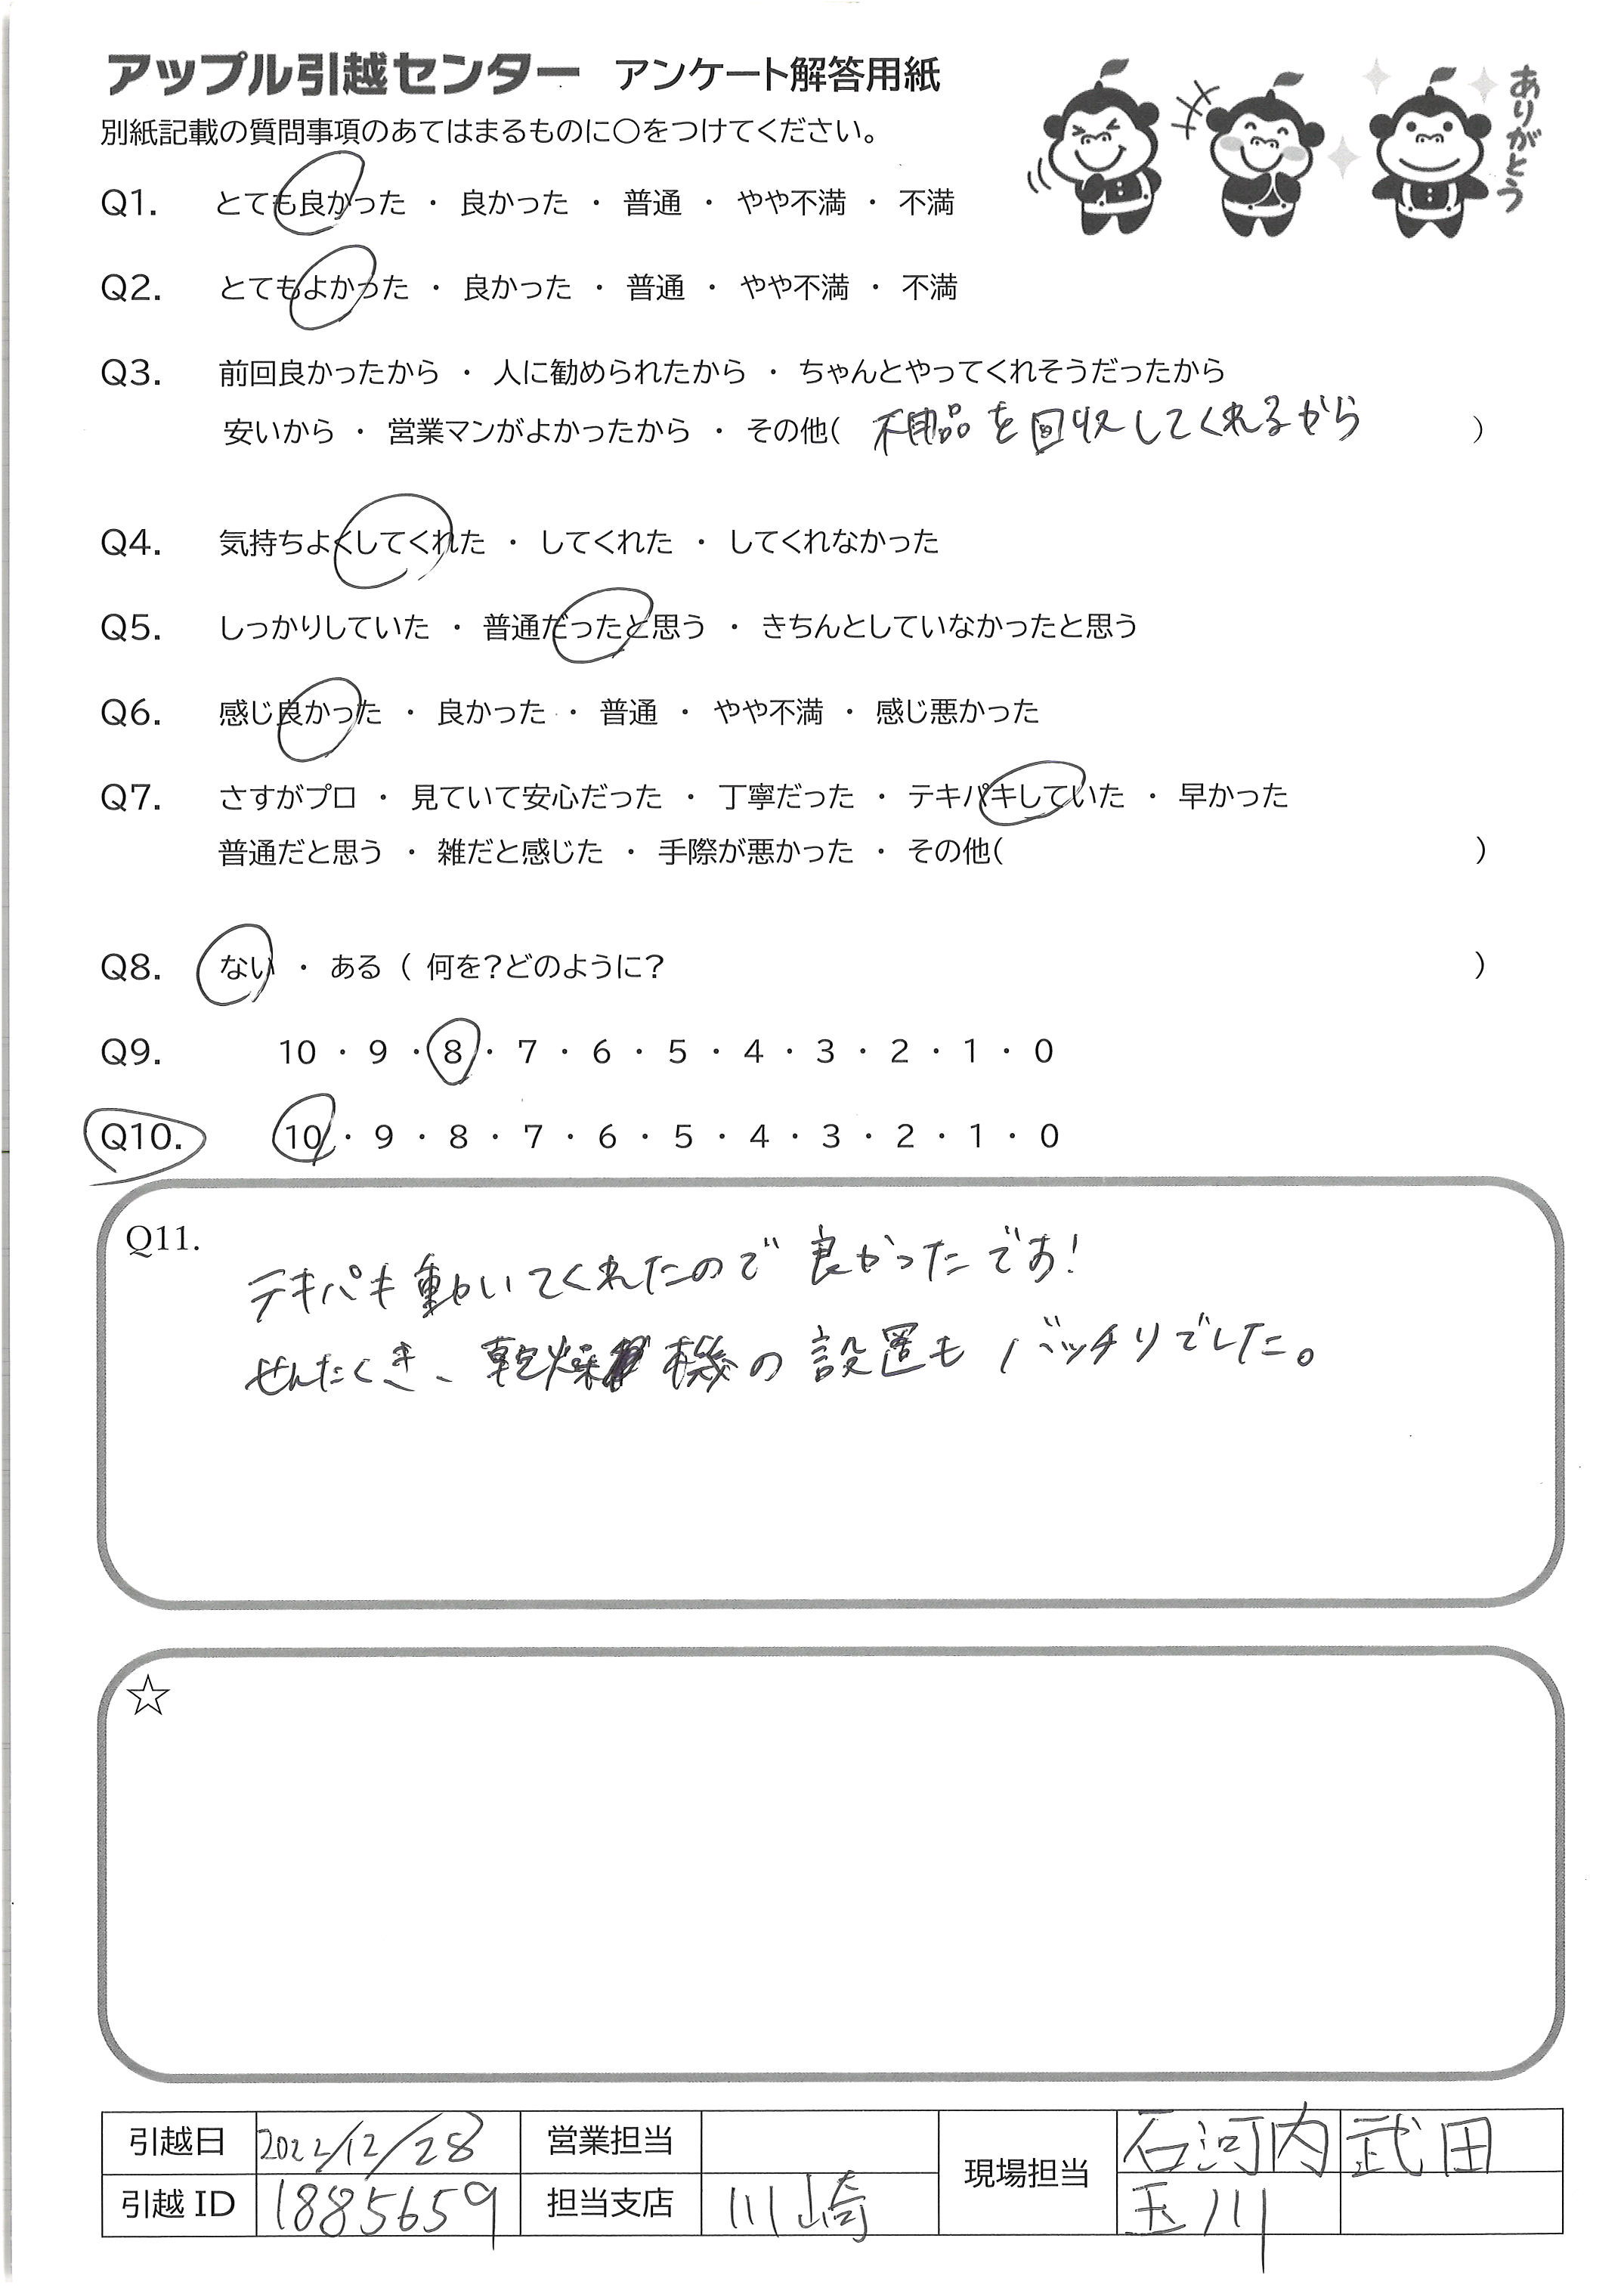 アップル引越センター アンケート解答用紙
ありがとう
別紙記載の質問事項のあてはまるものに○をつけてください。
Q1. とても良かった ・ 良かった ・ 普通 ・ やや不満 ・ 不満
Q2. とてもよかった ・ 良かった ・ 普通 ・ やや不満 ・ 不満
Q3. 前回良かったから ・ 人に勧められたから ・ ちゃんとやってくれそうだったから
安いから ・ 営業マンがよかったから ・ その他( 不用品を回収してくれるから )
Q4. 気持ちよくしてくれた ・ してくれた ・ してくれなかった
Q5. しっかりしていた ・ 普通だったと思う ・ きちんとしていなかったと思う
Q6. 感じ良かった ・ 良かった ・ 普通 ・ やや不満 ・ 感じ悪かった
Q7. さすがプロ ・ 見ていて安心だった ・ 丁寧だった ・ テキパキしていた ・ 早かった
普通だと思う ・ 雑だと感じた ・ 手際が悪かった ・ その他( )
Q8. ない ・ ある ( 何を?どのように? )
Q9. 10 ・ 9 ・ 8 ・ 7 ・ 6 ・ 5 ・ 4 ・ 3 ・ 2 ・ 1 ・ 0
Q10. 10 ・ 9 ・ 8 ・ 7 ・ 6 ・ 5 ・ 4 ・ 3 ・ 2 ・ 1 ・ 0
Q11.
テキパキ動いてくれたので良かったです!
せんたくき、乾燥機の設置もバッチリでした。
☆
引越日 2022/12/28 営業担当 現場担当 石河内 武田
引越ID 1885659 担当支店 川崎 玉川